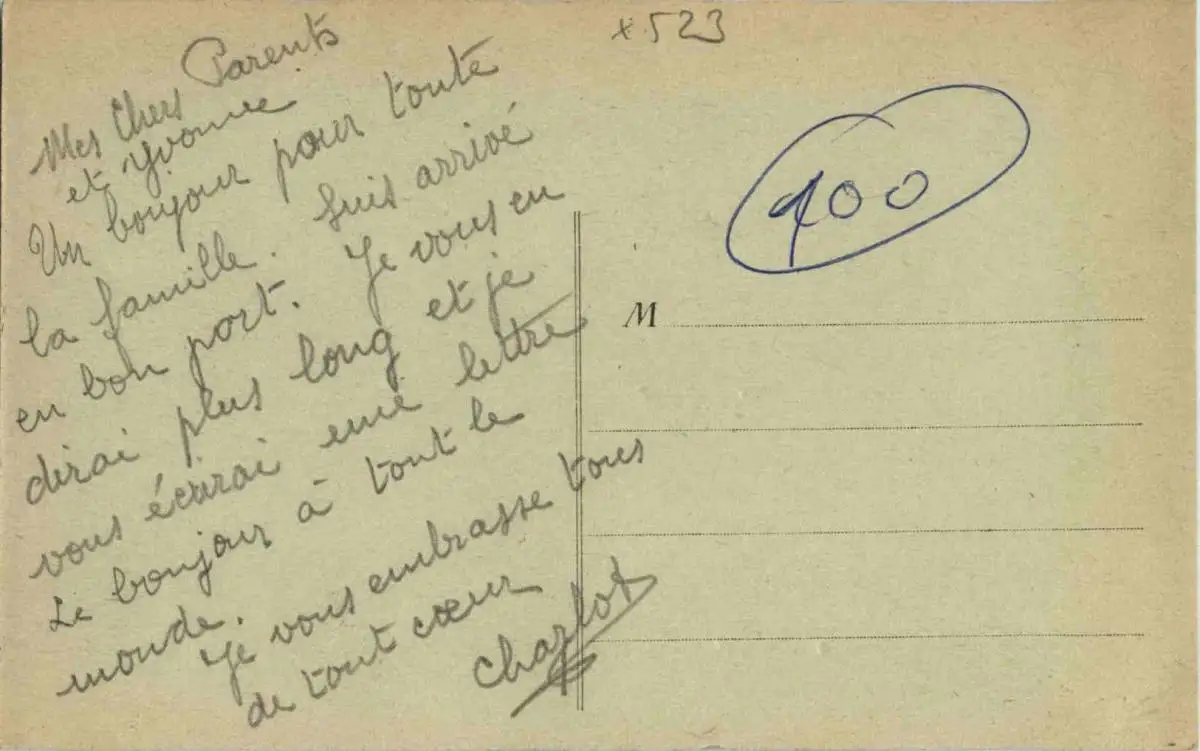 x 523
Mes Chers Parents
et Yvonne
Un bonjour pour toute
la famille. Suis arrivé
en bon port. Je vous en
dirai plus long et je
vous écrirai une lettre
Le bonjour à tout le
monde.
Je vous embrasse tous
de tout cœur
Charlot
100
M